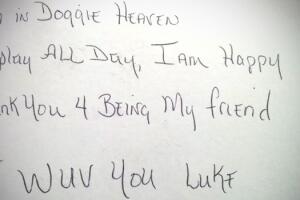 in Doggie Heaven
play All Day, I am Happy
nk You 4 Being My friend
Wuv You Luke